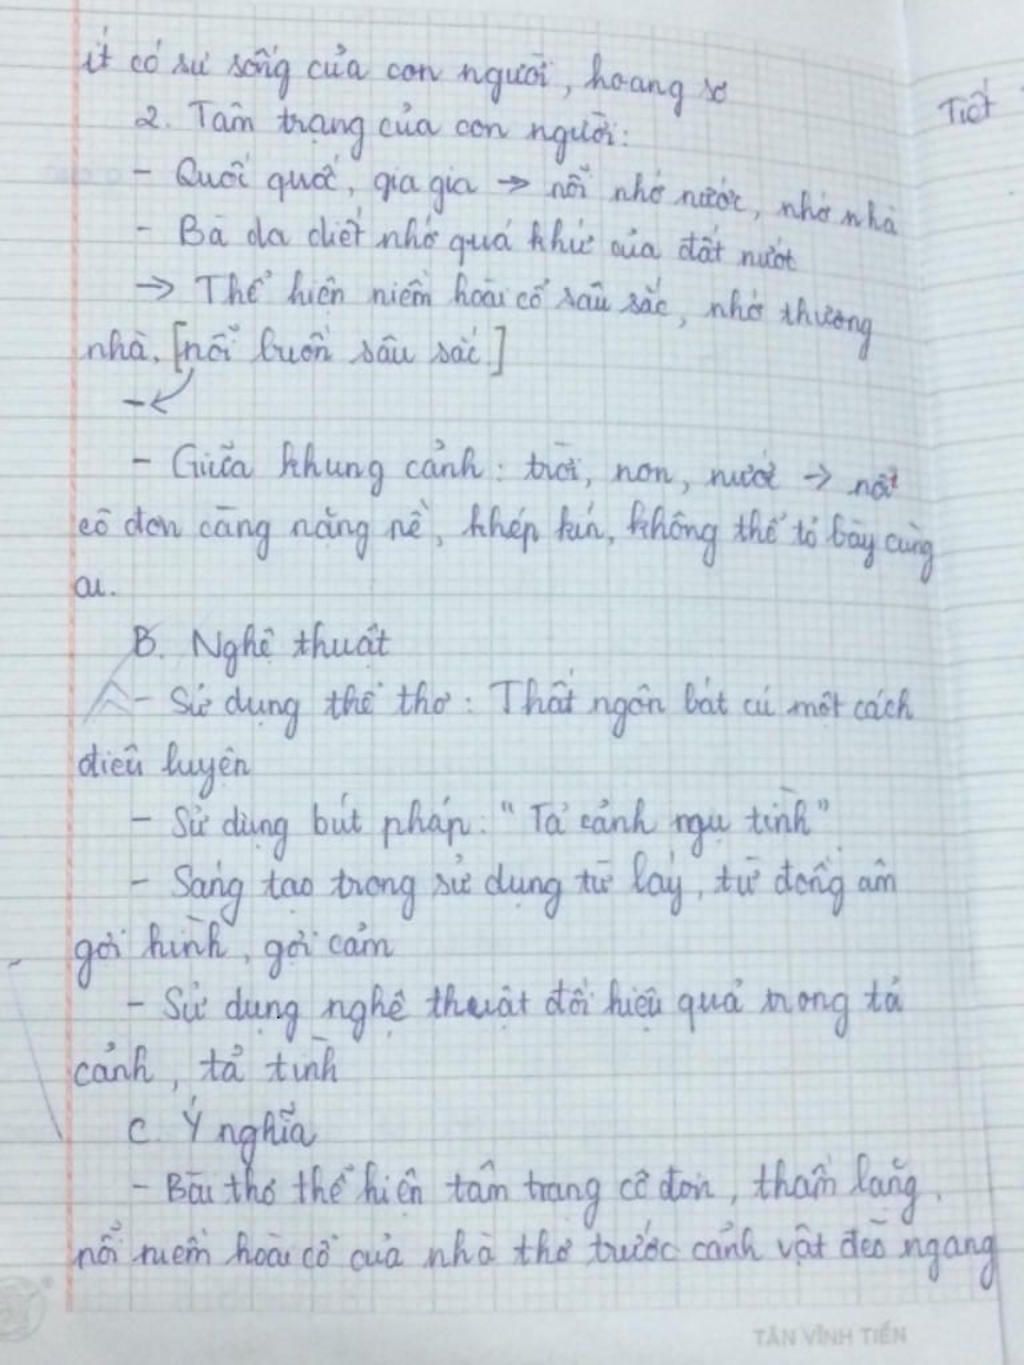 ít có sự sống của con người, hoang sơ
Tiết
2. Tâm trạng của con người:
- Quốc quốc, gia gia → nỗi nhớ nước, nhớ nhà
- Bà da diết nhớ quá khứ của đất nước
→ Thể hiện niềm hoài cổ sâu sắc, nhớ thương
nhà. [nỗi buồn sâu sắc.]
- Giữa khung cảnh: trời, non, nước → nỗi
cô đơn càng nặng nề, khép kín, không thể tỏ bày cùng
ai.
B. Nghệ thuật
- Sử dụng thể thơ: Thất ngôn bát cú một cách
điêu luyện
- Sử dụng bút pháp: "Tả cảnh ngụ tình"
- Sáng tạo trong sử dụng từ láy, từ đồng âm
gợi hình, gợi cảm
- Sử dụng nghệ thuật đối hiệu quả trong tả
cảnh, tả tình
C. Ý nghĩa
- Bài thơ thể hiện tâm trạng cô đơn, thầm lặng,
nỗi niềm hoài cổ của nhà thơ trước cảnh vật đèo ngang
TÂN VĨNH TIẾN